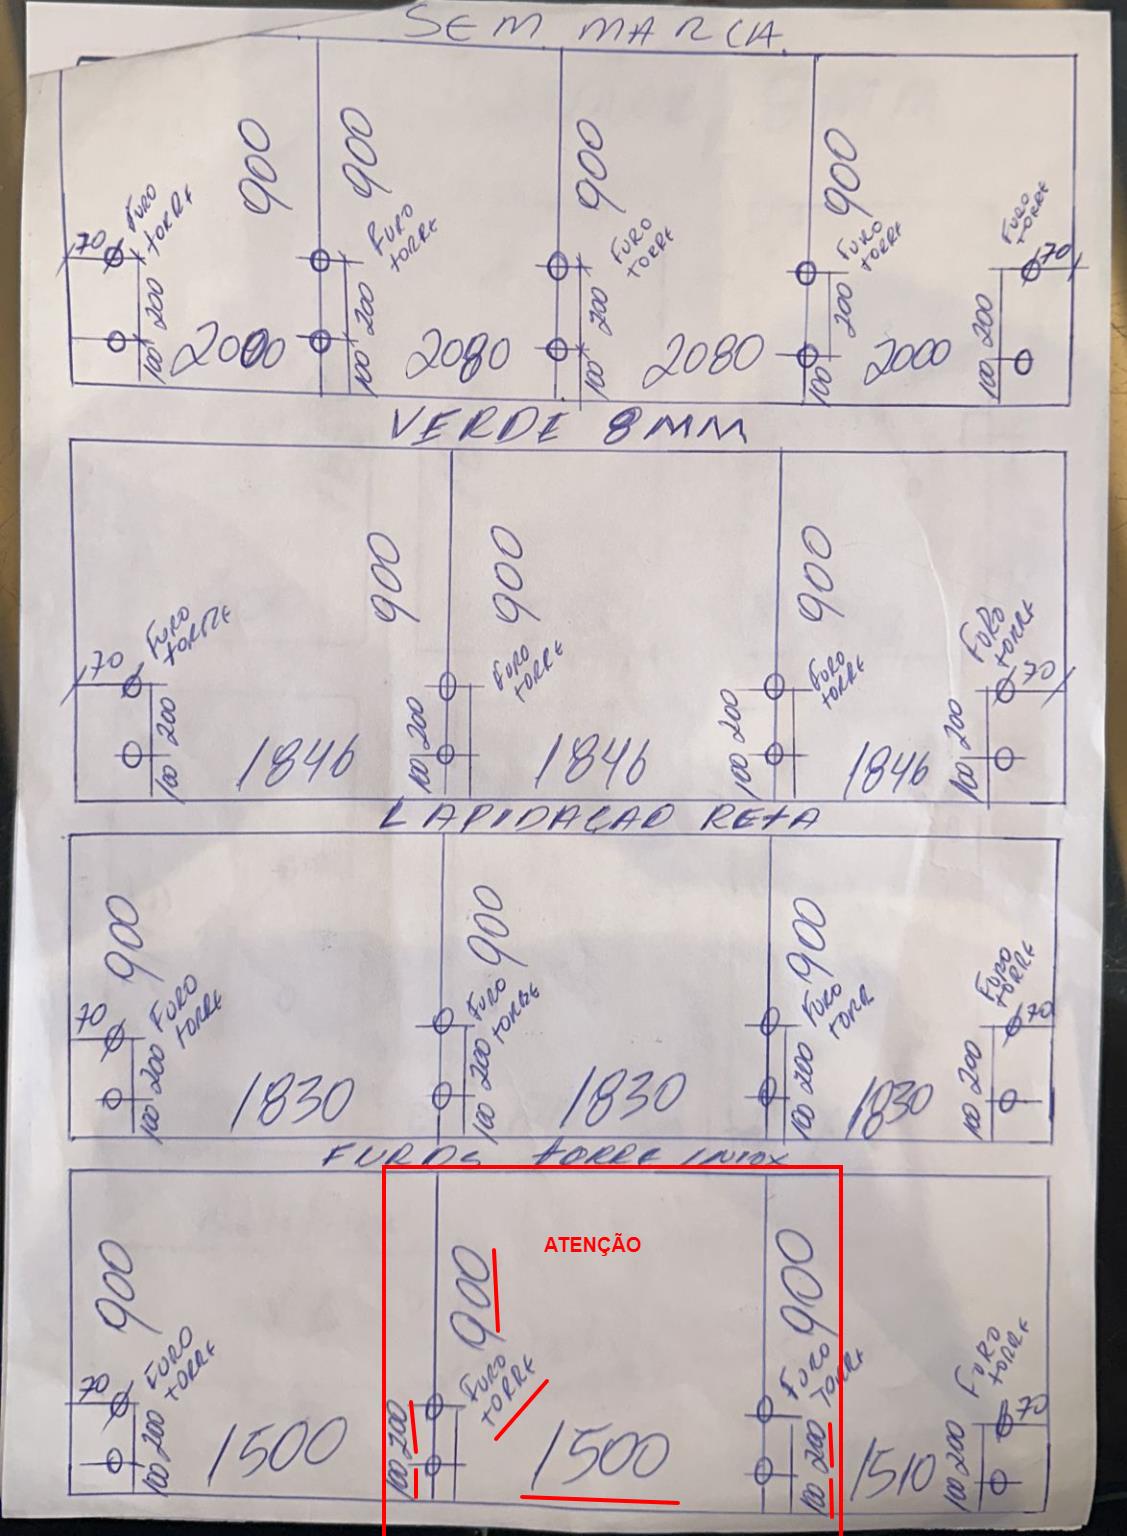 SEM MARCA
900 900 900 900
70 FURO TORRE
FURO TORRE
FURO TORRE
FURO TORRE
FURO TORRE 70
100 200 2000
100 200 2080
100 200 2080
100 200 2000
100 200
VERDE 8MM
900 900 900
70 FURO TORRE
FURO TORRE
FURO TORRE
FURO TORRE 70
100 200 1846
100 200 1846
100 200 1846
100 200
LAPIDAÇAO RETA
900 900 900
70 FURO TORRE
FURO TORRE
FURO TORR
FURO TORRE 70
100 200 1830
100 200 1830
100 200 1830
100 200
FUROS TORRE INOX
ATENÇÃO
900 900 900
70 FURO TORRE
FURO TORRE
FURO TORRE
FURO TORRE 70
100 200 1500
100 200 1500
100 200 1510
100 200